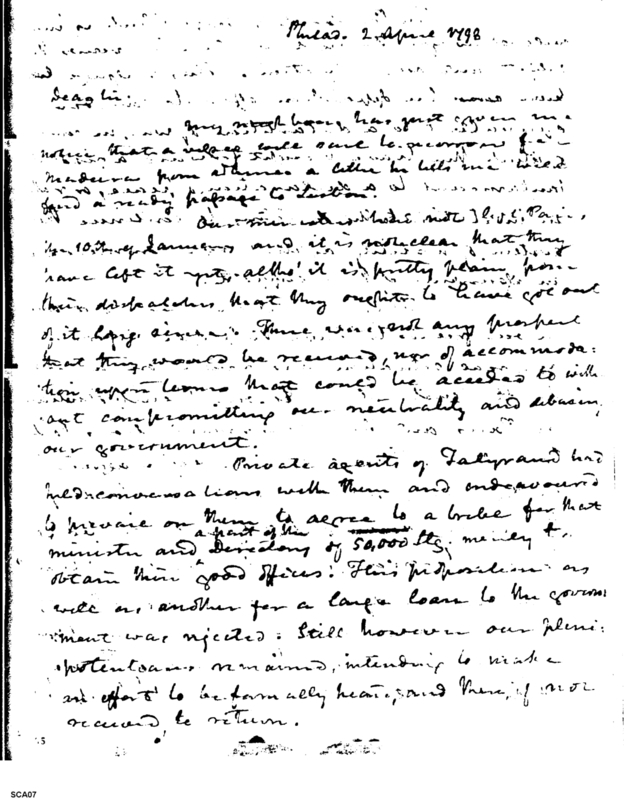 Philad. 2 April 1798
Dear Sir.
My neighbour has just given me
notice that a vessel will sail tomorrow for
Madeira from whence a letter he tells me will
find a ready passage to Lisbon.
Our ministers had not left Paris
the 10th of January and it is not clear that they
have left it yet, altho' it is pretty plain from
their dispatches that they ought to have got out
of it long since. There was not any prospect
that they would be received, nor of accommoda:
tion upon terms that could be acceded to with
out compromitting our neutrality and debasing
our government.
Private agents of Talyrand had
held conversations with them and endeavoured
to prevail on them to agree to a bribe for that
minister and a part of the Directory of 50,000 Stg. merely to
obtain their good offices. This proposition as
well as another for a large loan to the govern
ment was rejected. Still however our pleni:
potentiaries remained, intending to make
an effort to be formally heard, and then, if not
received, to return.
SCA07